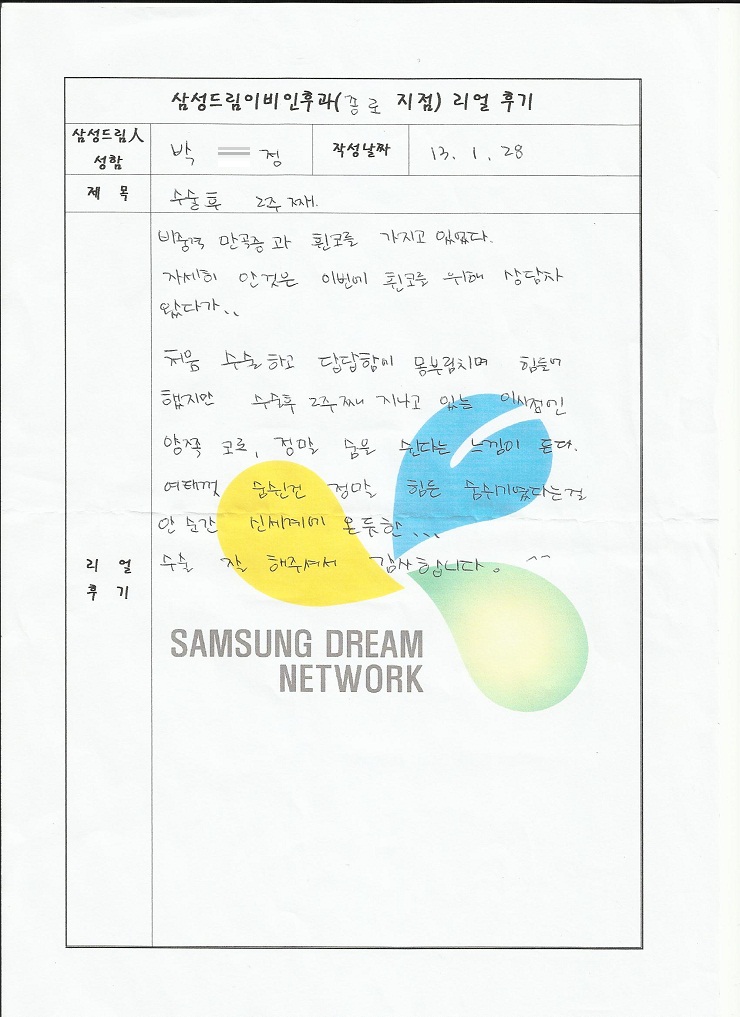 삼성드림이비인후과(종로 지점) 리얼 후기
삼성드림人 성함
박 정
작성날짜
13. 1. 28
제 목
수술후 2주째.
리 얼 후 기
비중격 만곡증과 휜코를 가지고 있었다.
자세히 안것은 이번에 휜코를 위해 상담차
왔다가..
처음 수술하고 답답함에 몸부림치며 힘들어
했지만 수술후 2주째 지나고 있는 이시점엔
양쪽 코로, 정말 숨을 쉰다는 느낌이 든다.
여태껏 숨쉰건 정말 힘든 숨쉬기였다는걸
안 순간 신세계에 온듯한...
수술 잘 해주셔서 감사합니다. ^^
SAMSUNG DREAM
NETWORK